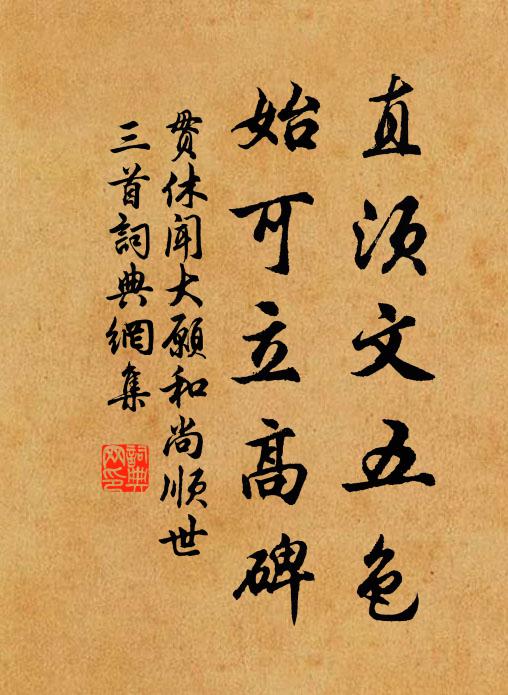 直須文五色
始可立高碑
貫休聞大願和尚順世
三首詞典網集
詞典
网印